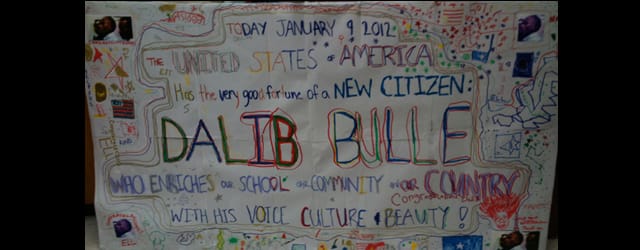 TODAY JANUARY 9 2012
THE UNITED STATES of AMERICA
Has the very good fortune of a NEW CITIZEN:
DALIB BULLE
WHO ENRICHES OUR SCHOOL OUR COMMUNITY AND OUR COUNTRY
WITH HIS VOICE CULTURE & BEAUTY!